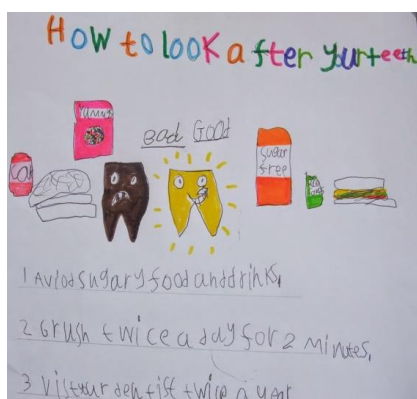 How to look after your teeth
Bad Good
sugar
free
1 Aviod sugary food and drinks,
2 Brush twice a day for 2 minutes,
3 Visit your dentist twice a year